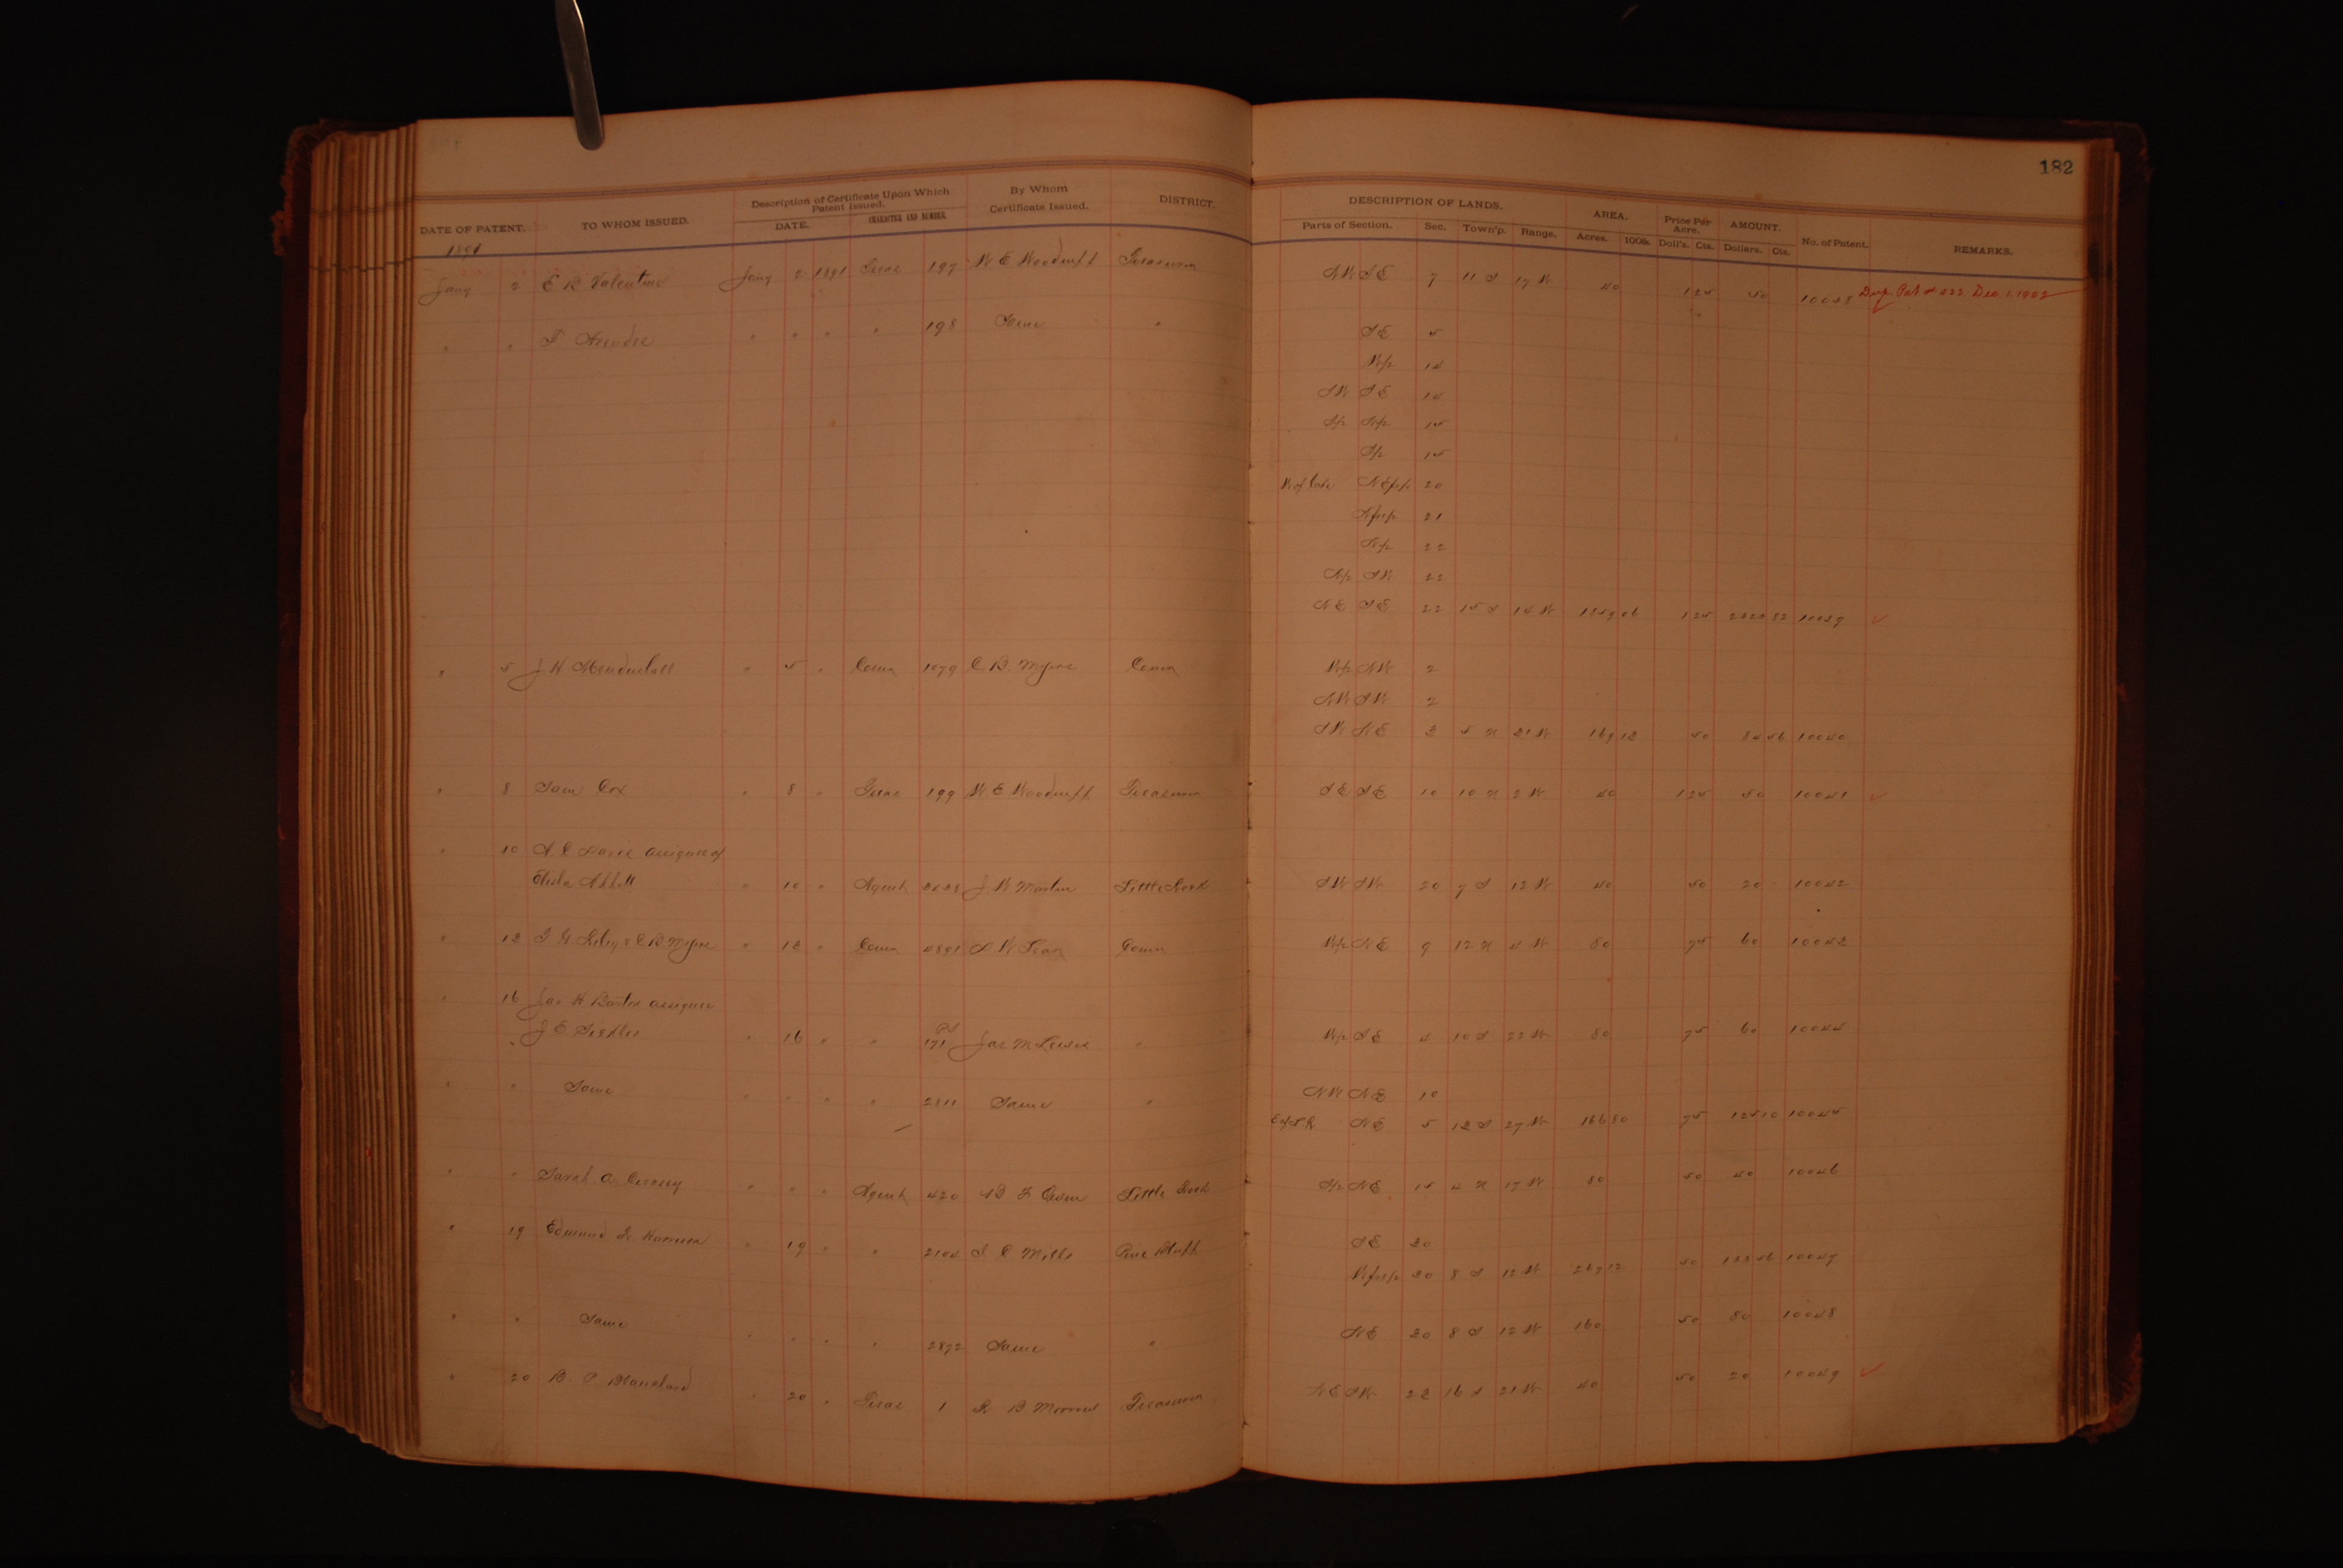 182
DATE OF PATENT. TO WHOM ISSUED. Description of Certificate Upon Which Patent Issued. DATE. CHARACTER AND NUMBER. By Whom Certificate Issued. DISTRICT. DESCRIPTION OF LANDS. Parts of Section. Sec. Town'p. Range. AREA. Acres. 100th. Price Per Acre. Doll's. Cts. AMOUNT. Dollars. Cts. No. of Patent. REMARKS.
1891
Jany 2 E R Valentine Jany 2 1891 Treas 197 W E Woodruff Treasurer NW SE 7 11 S 17 W 40 1 25 50 10038 Dup. Pat # 422 Dec. 1. 1902
" " T " " " " 198 Same " SE 5
W/2 14
SW SE 14
S/2 N/2 15
S/2 15
W of Lake 20
21
N/2 22
N/2 SW 22
NE SE 22 15 S 14 W 1 25 10039
" 5 J H Mendenhall " 5 " Comr 1079 C B Myers Comr W/2 NW 2
NW SW 2
SW NE 3 5 N 21 W 169 12 50 84 56 10040
" 8 Sam Cox " 8 " Treas 199 W. E Woodruff Treasurer SE SE 10 10 N 2 W 40 1 25 50 10041
" 10 A. C Davis assignee of
Elisha Abbott " 10 " Agent J W Martin Little Rock SW SW 20 7 S 12 W 40 50 20 10042
" 12 C B Myers " 12 " Comr 4891 Comr W/2 NE 9 12 N 4 W 80 75 60 10043
" 16 Jas H Barton assignee
J E " 16 " " 171 Jas M Lewis " W/2 SE 4 10 S 22 W 80 75 60 10044
" " Same " " " " 2811 Same " NW NE 10
NE 5 13 S 27 W 166 80 75 125 10 10045
" " Sarah A. " " " Agent 420 Little Rock S/2 NE 15 4 N 17 W 80 50 40 10046
" 19 Edmund " 19 " " 2104 Mills Pine Bluff SE 30
30 8 S 12 W 267 12 50 133 56 10047
" " Same " " " " 2872 Same " NE 30 8 S 12 W 160 50 80 10048
" 20 B. P Blanchard " 20 " Treas 1 R B Morrow Treasurer NE SW 23 16 S 21 W 40 50 20 10049